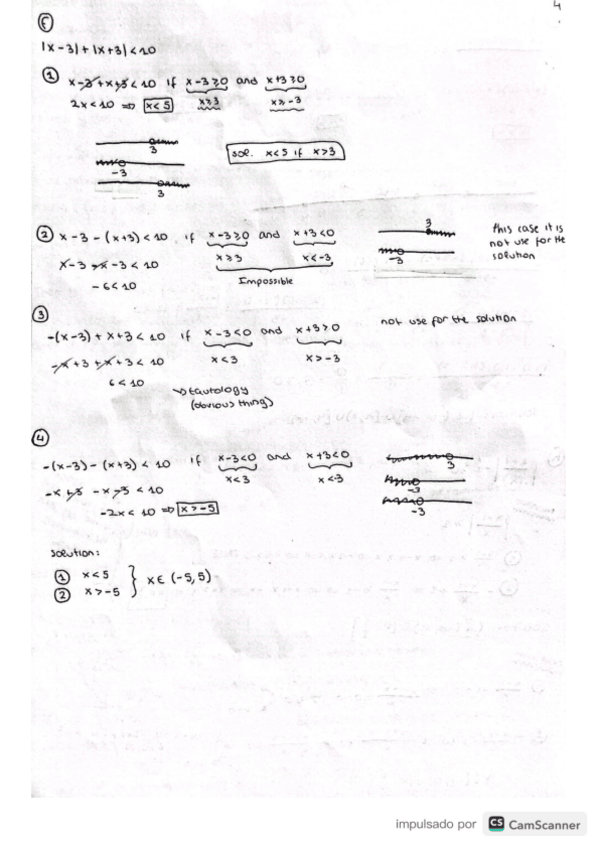 4
f
|x-3|+|x+3|<10
① x-3+x+3<10 if x-3≥0 and x+3≥0
2x<10 ⇒ x<5 x≥3 x≥-3
3
-3
3
sol. x<5 if x>3
② x-3-(x+3)<10 if x-3≥0 and x+3<0
x-3-x-3<10 x≥3 x<-3
-6<10 Impossible
3
-3
this case it is
not use for the
solution
③
-(x-3)+x+3<10 if x-3<0 and x+3≥0 not use for the solution
-x+3+x+3<10 x<3 x>-3
6<10
→ tautology
(obvious thing)
④
-(x-3)-(x+3)<10 if x-3<0 and x+3<0
-x+3-x-3<10 x<3 x<-3
-2x<10 ⇒ x>-5
3
-3
-3
solution:
① x<5
② x>-5 } x∈(-5,5)
impulsado por CS CamScanner